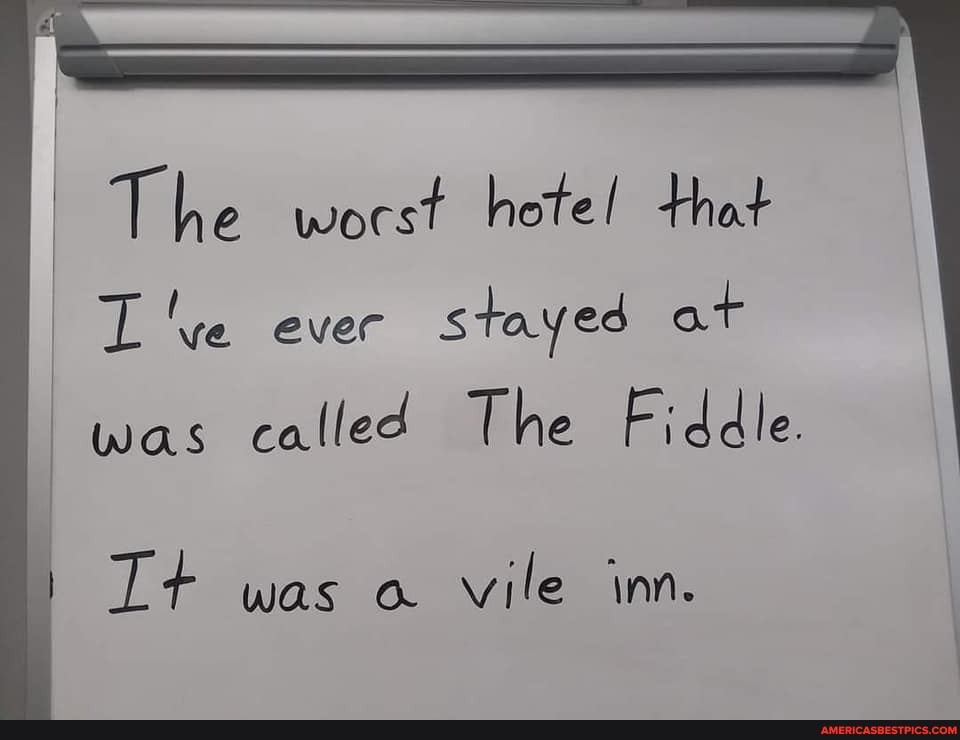 The worst hotel that
I've ever stayed at
was called The Fiddle.
It was a vile inn.
AMERICASBESTPICS.COM